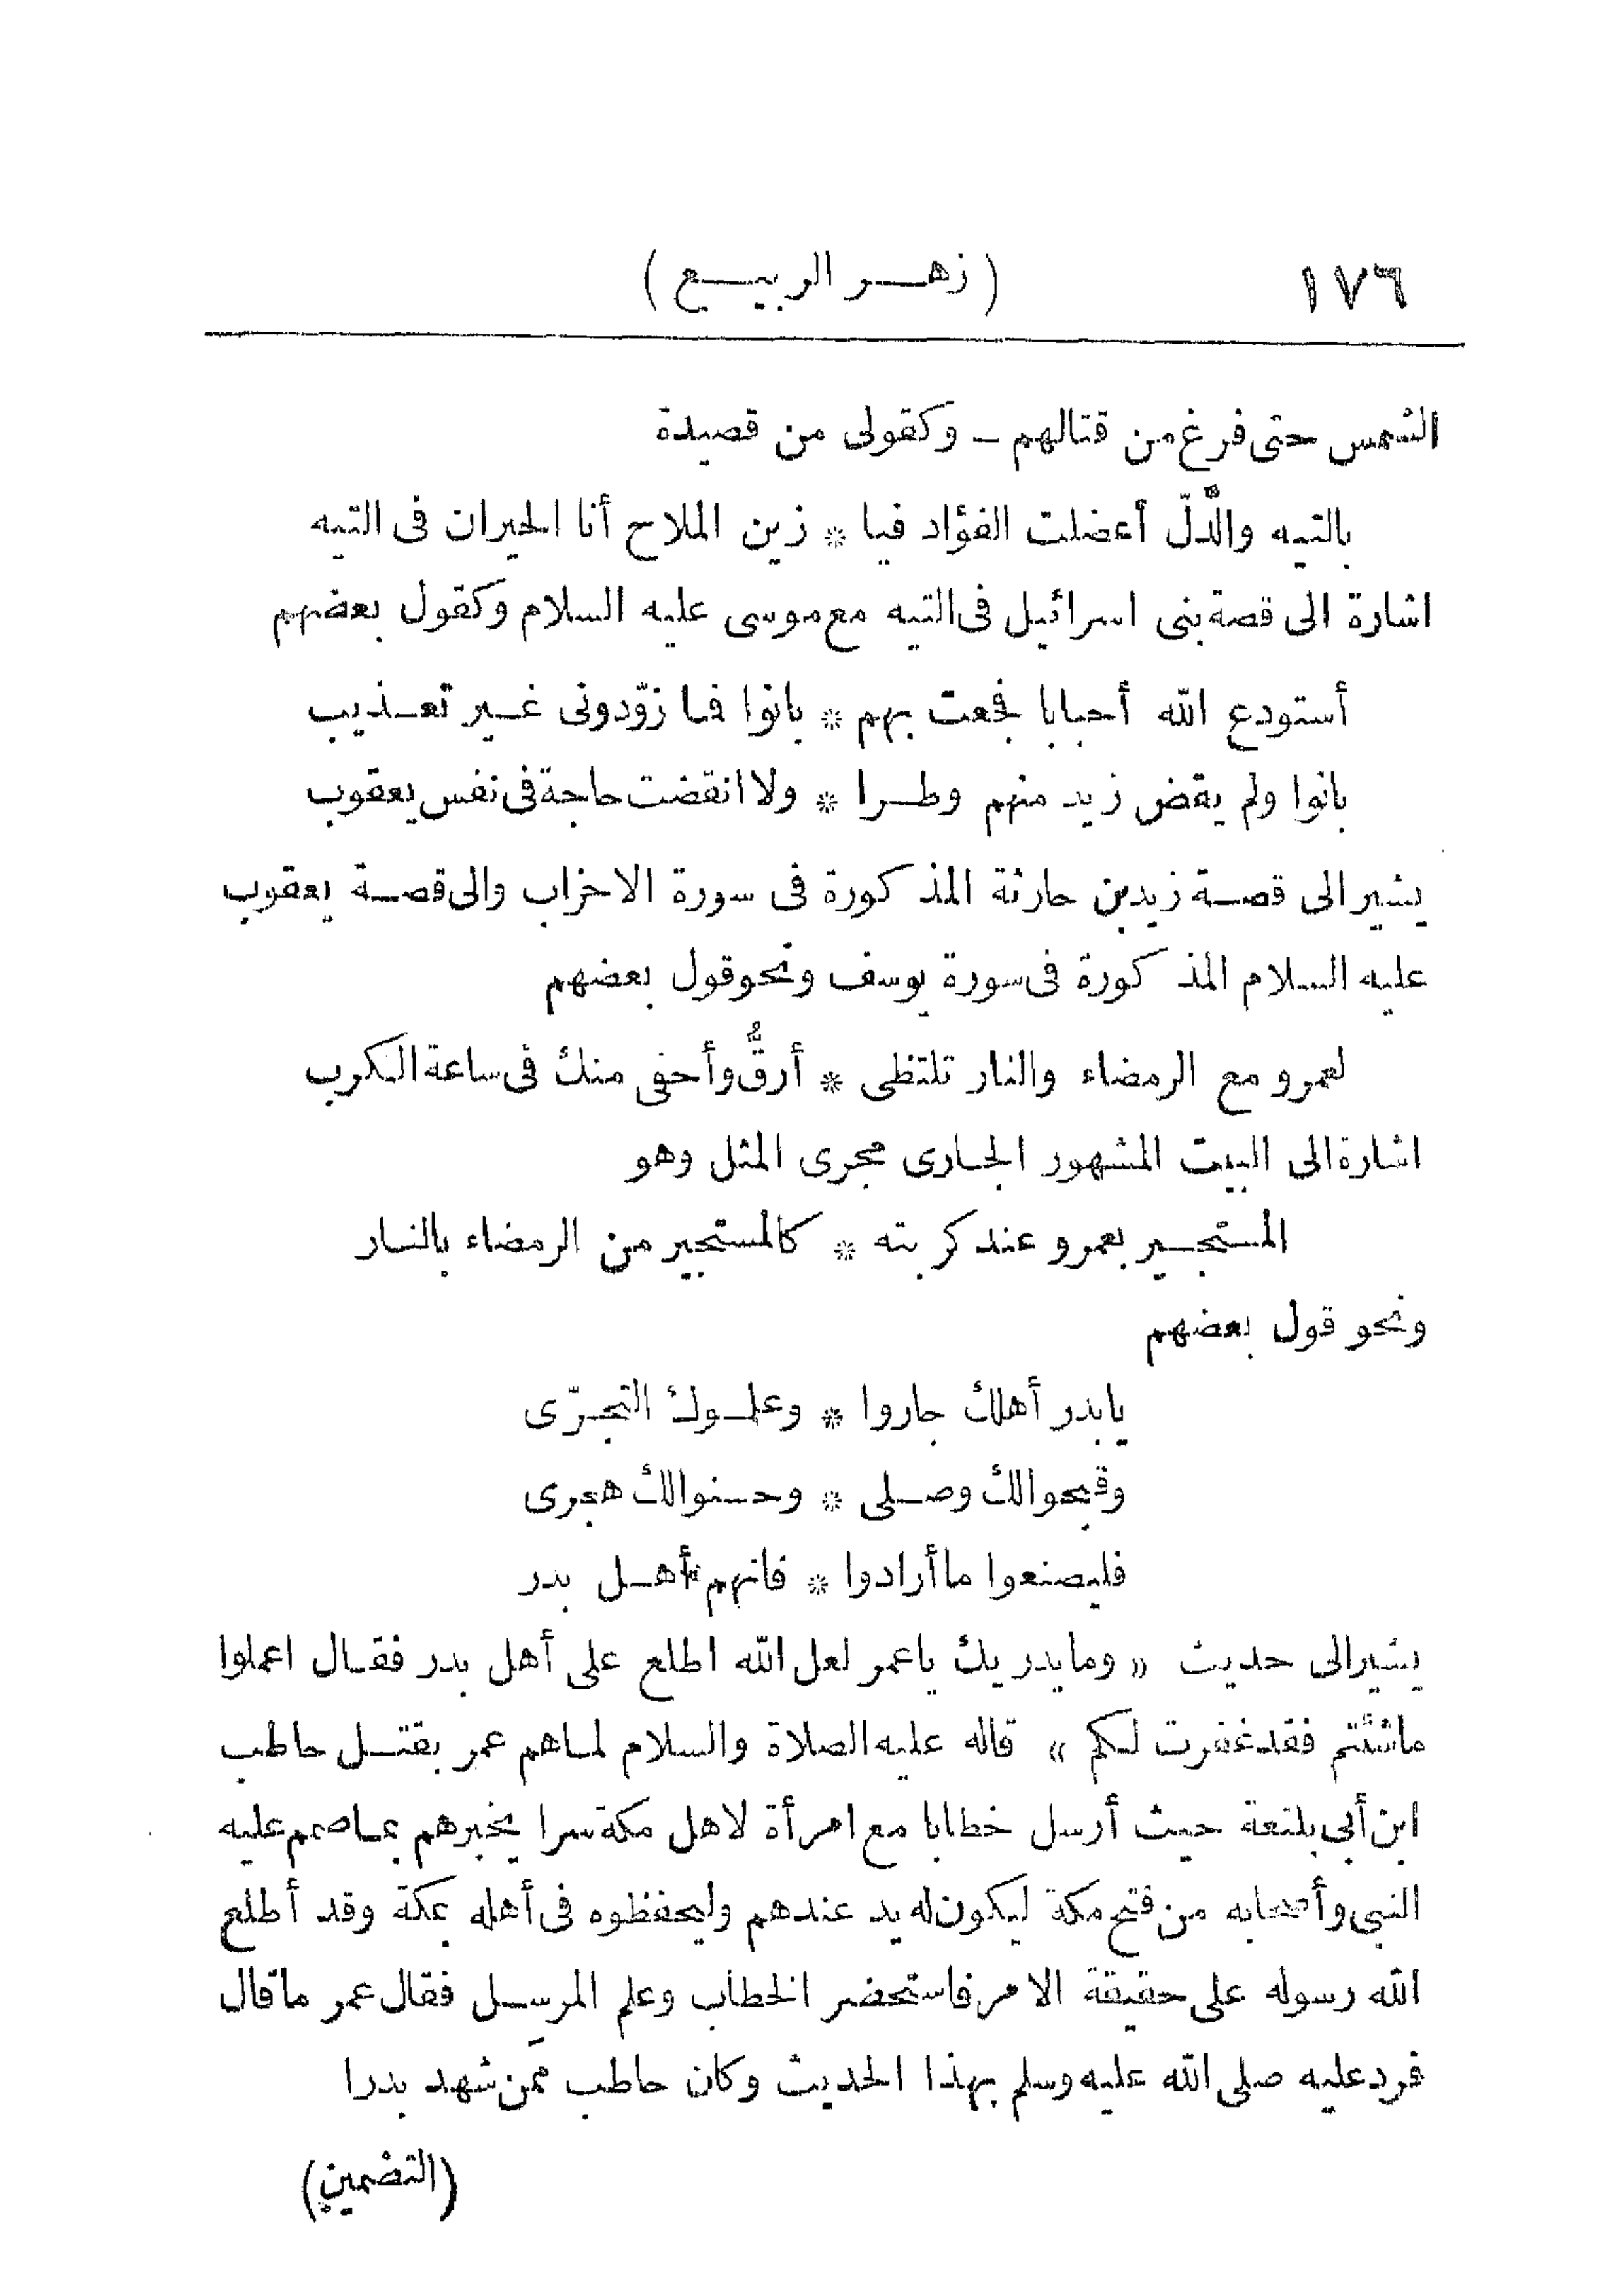 ١٧٦ (زهر الربيع)
الشمس حتى فرغ من قتالهم – وكقولى من قصيدة
بالتيه والدّلّ أعضلت الفؤاد فيا * زين الملاح أنا الحيران فى التيه
اشارة الى قصة بنى اسرائيل فى التيه مع موسى عليه السلام وكقول بعضهم
أستودع الله أحبابا فجعت بهم * بانوا فما زوّدونى غير تعذيب
بانوا ولم يقض زيد منهم وطرا * ولا انقضت حاجة فى نفس يعقوب
يشير الى قصة زيد بن حارثة المذكورة فى سورة الاحزاب والى قصة يعقوب
عليه السلام المذكورة فى سورة يوسف ونحو قول بعضهم
لعمرو مع الرمضاء والنار تلتظى * أرقُّ وأحفى منك فى ساعة الكرب
اشارة الى البيت المشهور الجارى مجرى المثل وهو
المستجير بعمرو عند كربته * كالمستجير من الرمضاء بالنار
ونحو قول بعضهم
يا بدر أهلك جاروا * وعلموك التجرّى
وقبحوا لك وصلى * وحسنوا لك هجرى
فليصنعوا ما أرادوا * فانهم أهل بدر
يشير الى حديث « وما يدريك ياعمر لعل الله اطلع على أهل بدر فقال اعملوا
ماشئتم فقد غفرت لكم » قاله عليه الصلاة والسلام لما هم عمر بقتل حاطب
ابن أبى بلتعة حيث أرسل خطابا مع امرأة لاهل مكة سرا يخبرهم بما صمم عليه
النبى وأصحابه من فتح مكة ليكون له يد عندهم وليحفظوه فى أهله بمكة وقد أطلع
الله رسوله على حقيقة الامر فاستحضر الخطاب وعلم المرسِل فقال عمر ما قال
فرد عليه صلى الله عليه وسلم بهذا الحديث وكان حاطب ممن شهد بدرا
(التضمين)